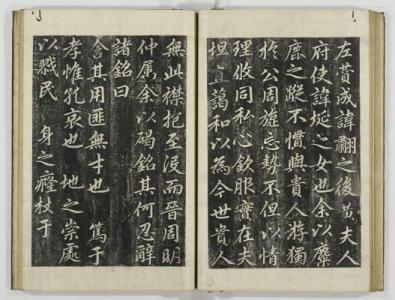 左黄成諱翻之後黄夫人
府使諱埏之女也余以麋
鹿之蹤不慣與貴人游獨
於公周旋忘勢不但以情
理攸同私心欽服實在夫
坦直藹和以為今世貴人
無此襟抱至後而晉周明
仲屬余以碣銘其何忍辭
諸銘曰
舍其用匪無士也 篤于
孝惟孔哀也 地之崇處
以戮民 身之癃杖于